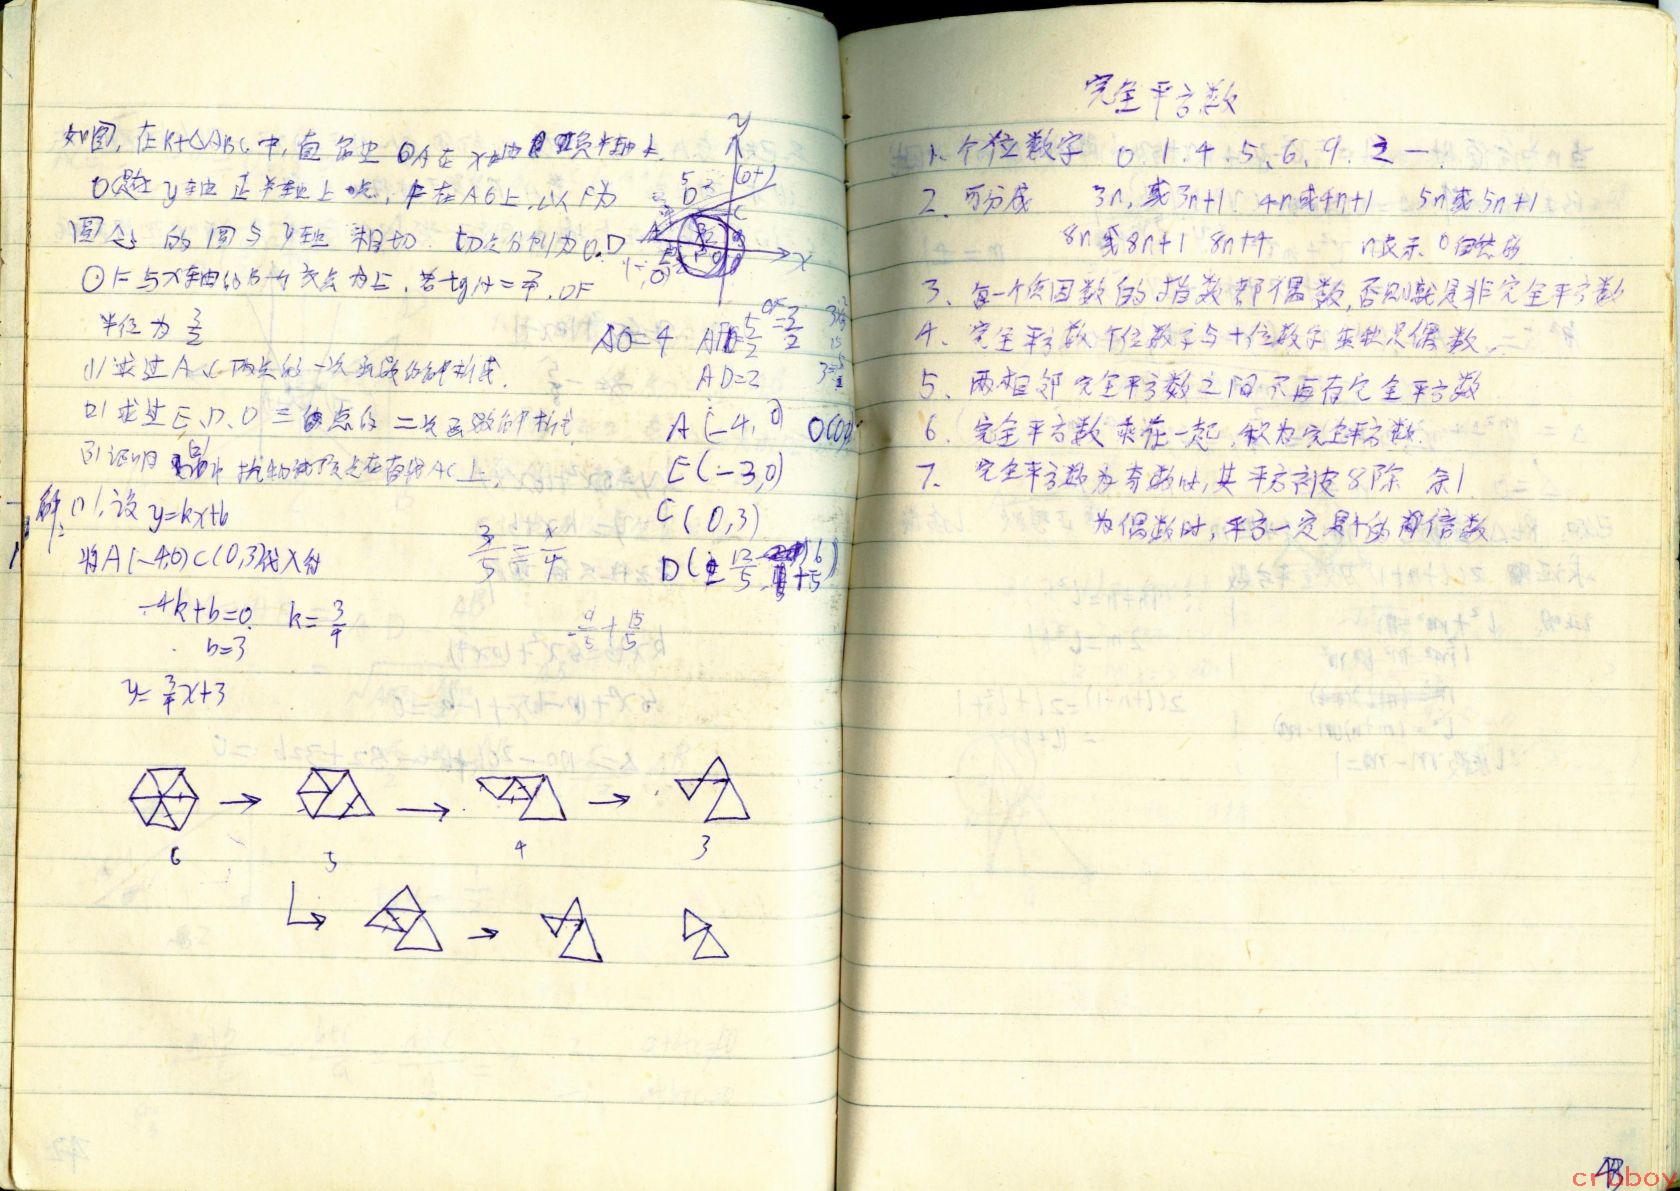 如图,在Rt△ABC中,直角边OA在x轴负半轴上
y轴正半轴上点,F在AB上,以F为
圆心的圆与y轴相切.切点分别为O.D
⊙F与x轴的另一个交点为E.若tgA=3/4.OF
半径为3/2
(1)求过A、C两点的一次函数的解析式.
(2)求过E、D、O三点的二次函数解析式
(3)证明 抛物线顶点在直线AC上
解:(1),设y=kx+b
将A(-4,0)C(0,3)代入得
-4k+b=0. k=3/4
b=3
y=3/4x+3
y
C
x
AO=4
AD=2
A(-4,0)
E(-3,0)
C(0,3)
3/5=x/4
-9/5+15/5
6 5 4 3
完全平方数
1、个位数字 0.1.4.5.6.9.之一.
2、可分成 3n,或3n+1 4n或4n+1 5n或5n±1
8n或8n+1 8n+4 n表示0自然数
3、每一个质因数的指数都偶数,否则就是非完全平方数
4、完全平方数个位数字与十位数字 只偶数.
5、两相邻完全平方数之间不再有完全平方数
6、完全平方数乘在一起,积为完全平方数.
7、完全平方数为奇数时,其平方 8除 余1.
为偶数时,平方一定是4的 倍数
43
cruboy